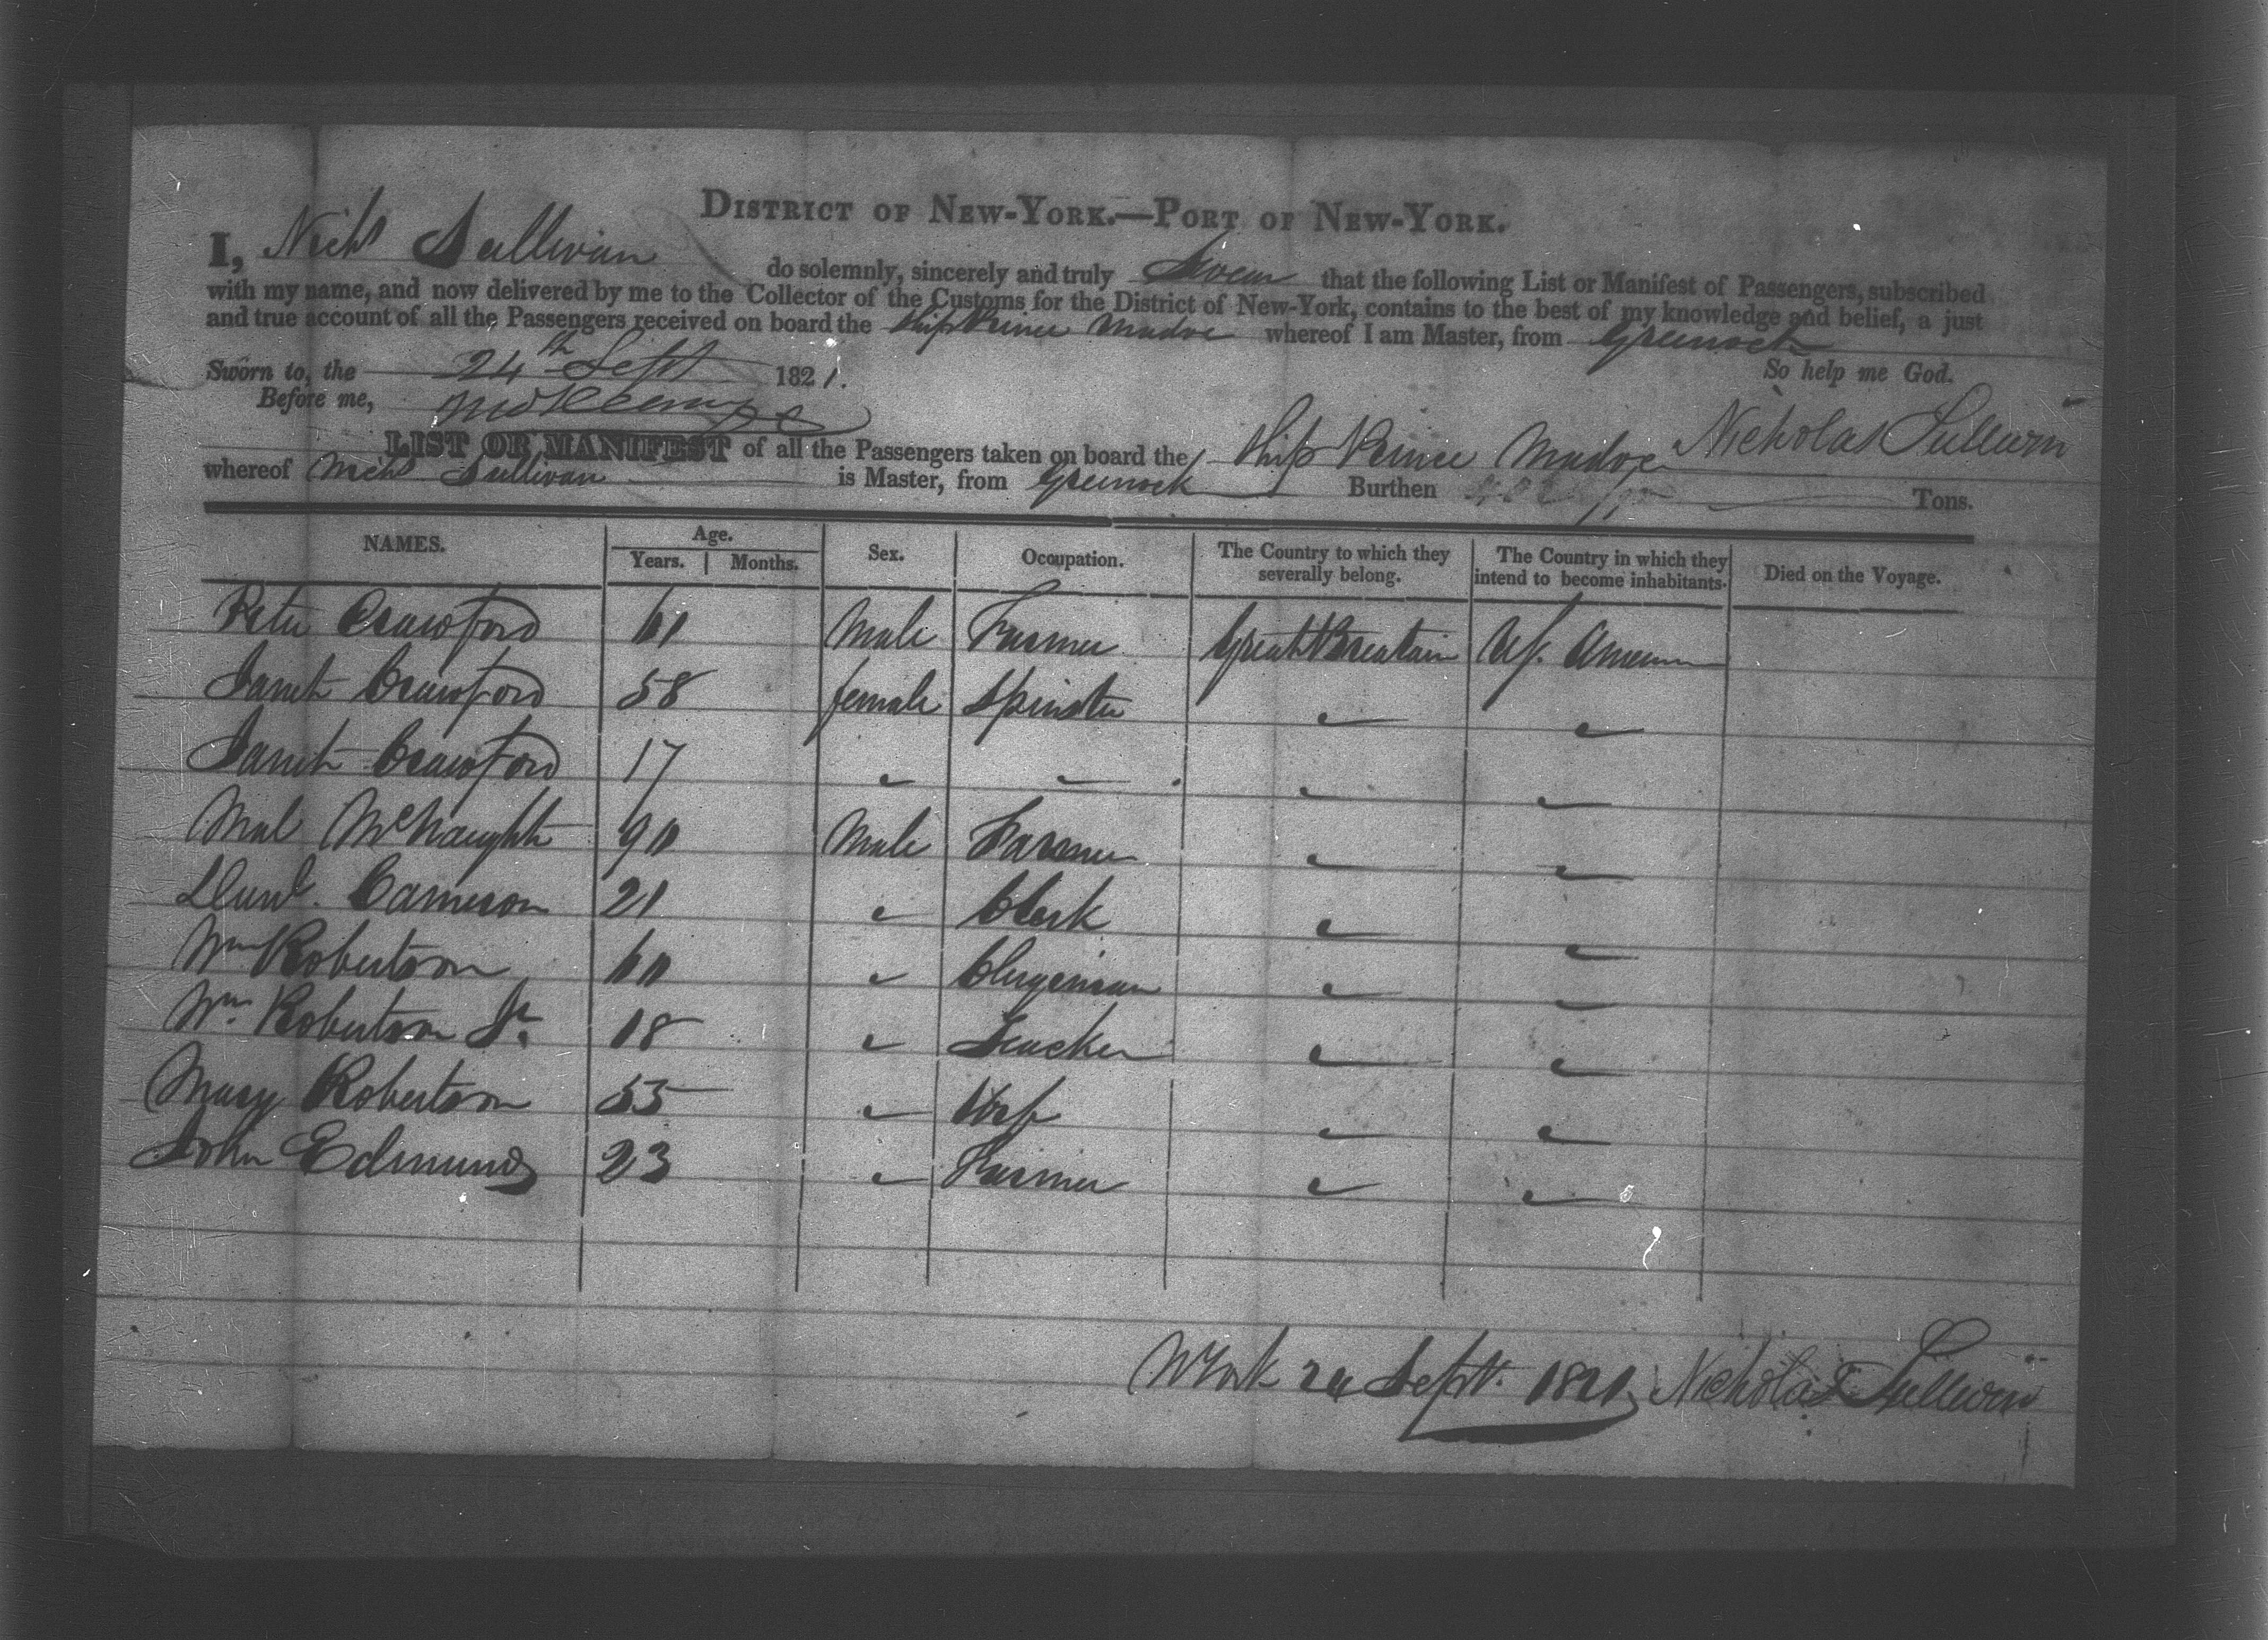 DISTRICT OF NEW-YORK.—PORT OF NEW-YORK.
I, Nichs Sullivan do solemnly, sincerely and truly Swear that the following List or Manifest of Passengers, subscribed
with my name, and now delivered by me to the Collector of the Customs for the District of New-York, contains to the best of my knowledge and belief, a just
and true account of all the Passengers received on board the Ship Prince Madoc whereof I am Master, from Greenock
So help me God.
Sworn to, the 24th Sept 1821.
Before me,
Nicholas Sullivan
LIST OR MANIFEST of all the Passengers taken on board the Ship Prince Madoc
whereof Nichs Sullivan is Master, from Greenock Burthen Tons.
NAMES. Age. Years. Months. Sex. Occupation. The Country to which they severally belong. The Country in which they intend to become inhabitants. Died on the Voyage.
Peter Crawford 61 Male Farmer Great Breatain US. America
Janet Crawford 58 female Spinster " "
Janet Crawford 17 " " " "
Mal McNaught 90 Male Farmer " "
Dund. Cameron 21 " Clerk " "
Wm Robertson 60 " Clergeman " "
Wm. Robertson Jr. 18 " Teacher " "
Mary Robertson 55 " Wife " "
John Edmund 23 " Farmer " "
NYork 24 Sept. 1821 Nicholas Sullivan